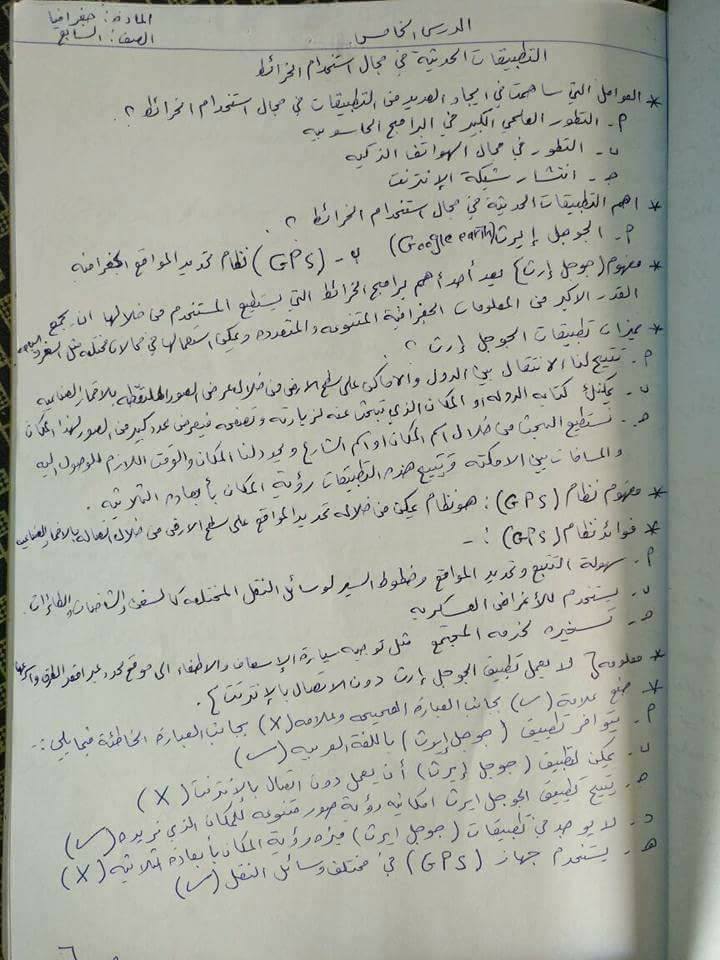 المادة: جغرافيا
الصف: السابع
الدرس الخامس
التطبيقات الحديثة في مجال استخدام الخرائط
* العوامل التي ساهمت في ايجاد العديد من التطبيقات في مجال استخدام الخرائط ؟
أ- التطور العلمي الكبير في البرامج الحاسوبية
ب- التطور في مجال الهواتف الذكية
جـ- انتشار شبكة الإنترنت
* اهم التطبيقات الحديثة في مجال استخدام الخرائط ؟
أ- الجوجل إيرث (Google earth) ب- (GPS) نظام تحديد المواقع الجغرافية
* مفهوم (جوجل إرث) يعد أحد أهم برامج الخرائط التي يستطيع المستخدم من خلالها ان يجمع
القدر الاكبر من المعلومات الجغرافية المتنوعة والمتعددة ويمكن استعمالها في مجالات مختلفة مثل السفر
* ميزات تطبيقات الجوجل إرث ؟
أ- تتيح لنا الانتقال بين الدول والاماكن على سطح الارض من خلال عرض الصور الملتقطة بالاقمار الصناعية
ب- يمكنك كتابة الدولة او المكان الذي تبحث عنه لزيارته وتصفحه فيعرض عدد كبير من الصور لهذا المكان
جـ- تستطيع البحث من خلال اسم المكان او اسم الشارع ويحدد لنا المكان والوقت اللازم للوصول اليه
والمسافات بين الامكنة وتتيح هذه التطبيقات رؤية المكان بأبعاده الثلاثية.
* مفهوم نظام (GPS): هو نظام يمكن من خلاله تحديد المواقع على سطح الارض من خلال اتصاله بالاقمار الصناعية
* فوائد نظام (GPS) :-
أ- سهولة التتبع وتحديد المواقع وخطوط السير لوسائل النقل المختلفة كالسفن والشاحنات والطائرات.
ب- يستخدم للأغراض العسكرية
جـ- تسخيره لخدمة المجتمع مثل توجيه سيارة الإسعاف والاطفاء الى موقع محدد عبر اقصر الطرق واسرعها
* معلومة { لا يعمل تطبيق الجوجل إرث دون الاتصال بالإنترنت }.
* ضع علامة (✓) بجانب العبارة الصحيحة وعلامة (X) بجانب العبارة الخاطئة فيما يلي :-
أ- يتوافر تطبيق (جوجل إيرث) باللغة العربية (✓)
ب- يمكن لتطبيق (جوجل إيرث) أن يعمل دون اتصال بالإنترنت (X)
جـ- يتيح تطبيق الجوجل ايرث امكانية رؤية صور متنوعة للمكان الذي نريده (✓)
د- لا يوجد في تطبيقات (جوجل ايرث) ميزة رؤية المكان بأبعاده الثلاثية (X)
هـ- يستخدم جهاز (GPS) في مختلف وسائل النقل (✓)